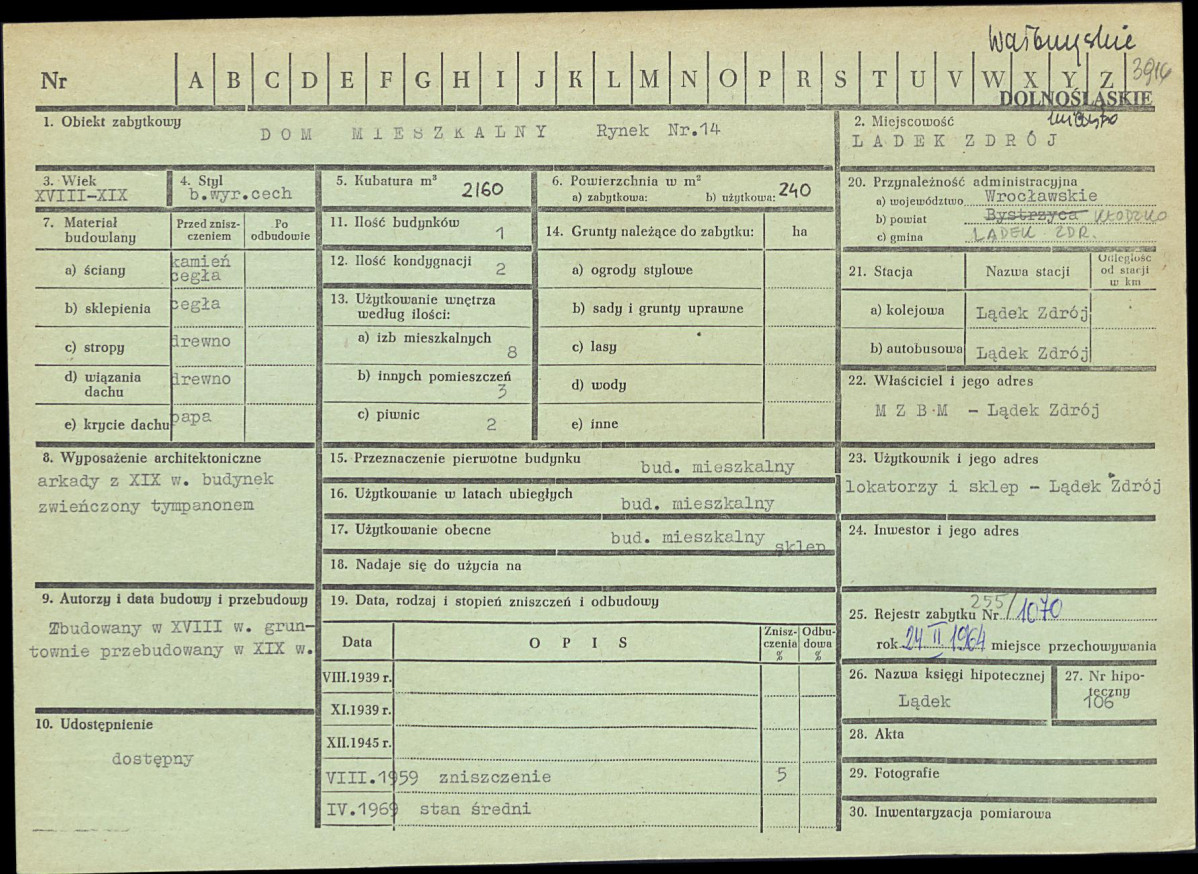 Wałbrzyskie
Nr A B C D E F G H I J K L M N O P R S T U V W X Y Z 3916
DOLNOŚLĄSKIE
1. Obiekt zabytkowy
DOM MIESZKALNY Rynek Nr.14
2. Miejscowość miasto
LADEK ZDRÓJ
3. Wiek
XVIII-XIX
4. Styl
b.wyr.cech
5. Kubatura m³
2160
6. Powierzchnia w m²
a) zabytkowa: b) użytkowa: 240
20. Przynależność administracyjna
a) województwo Wrocławskie
b) powiat Bystrzyca KŁODZKO
c) gmina LĄDEK ZDR.
7. Materiał budowlany
Przed zniszczeniem
Po odbudowie
a) ściany kamień cegła
b) sklepienia cegła
c) stropy drewno
d) wiązania dachu drewno
e) krycie dachu papa
11. Ilość budynków 1
12. Ilość kondygnacji 2
13. Użytkowanie wnętrza według ilości:
a) izb mieszkalnych 8
b) innych pomieszczeń 3
c) piwnic 2
14. Grunty należące do zabytku: ha
a) ogrody stylowe
b) sady i grunty uprawne
c) lasy
d) wody
e) inne
21. Stacja Nazwa stacji Odległość od stacji w km
a) kolejowa Lądek Zdrój
b) autobusowa Lądek Zdrój
22. Właściciel i jego adres
M Z B M - Lądek Zdrój
8. Wyposażenie architektoniczne
arkady z XIX w. budynek
zwieńczony tympanonem
15. Przeznaczenie pierwotne budynku
bud. mieszkalny
16. Użytkowanie w latach ubiegłych
bud. mieszkalny
17. Użytkowanie obecne
bud. mieszkalny
sklep
18. Nadaje się do użycia na
23. Użytkownik i jego adres
lokatorzy i sklep - Lądek Zdrój
24. Inwestor i jego adres
9. Autorzy i data budowy i przebudowy
Zbudowany w XVIII w. grun-
townie przebudowany w XIX w.
10. Udostępnienie
dostępny
19. Data, rodzaj i stopień zniszczeń i odbudowy
Data OPIS Zniszczenia % Odbudowa %
VIII.1939 r.
XI.1939 r.
XII.1945 r.
VIII.1959 zniszczenie 5
IV.1969 stan średni
25. Rejestr zabytku Nr 255/1070
rok 24 II 1964 miejsce przechowywania
26. Nazwa księgi hipotecznej
Lądek
27. Nr hipoteczny
106
28. Akta
29. Fotografie
30. Inwentaryzacja pomiarowa